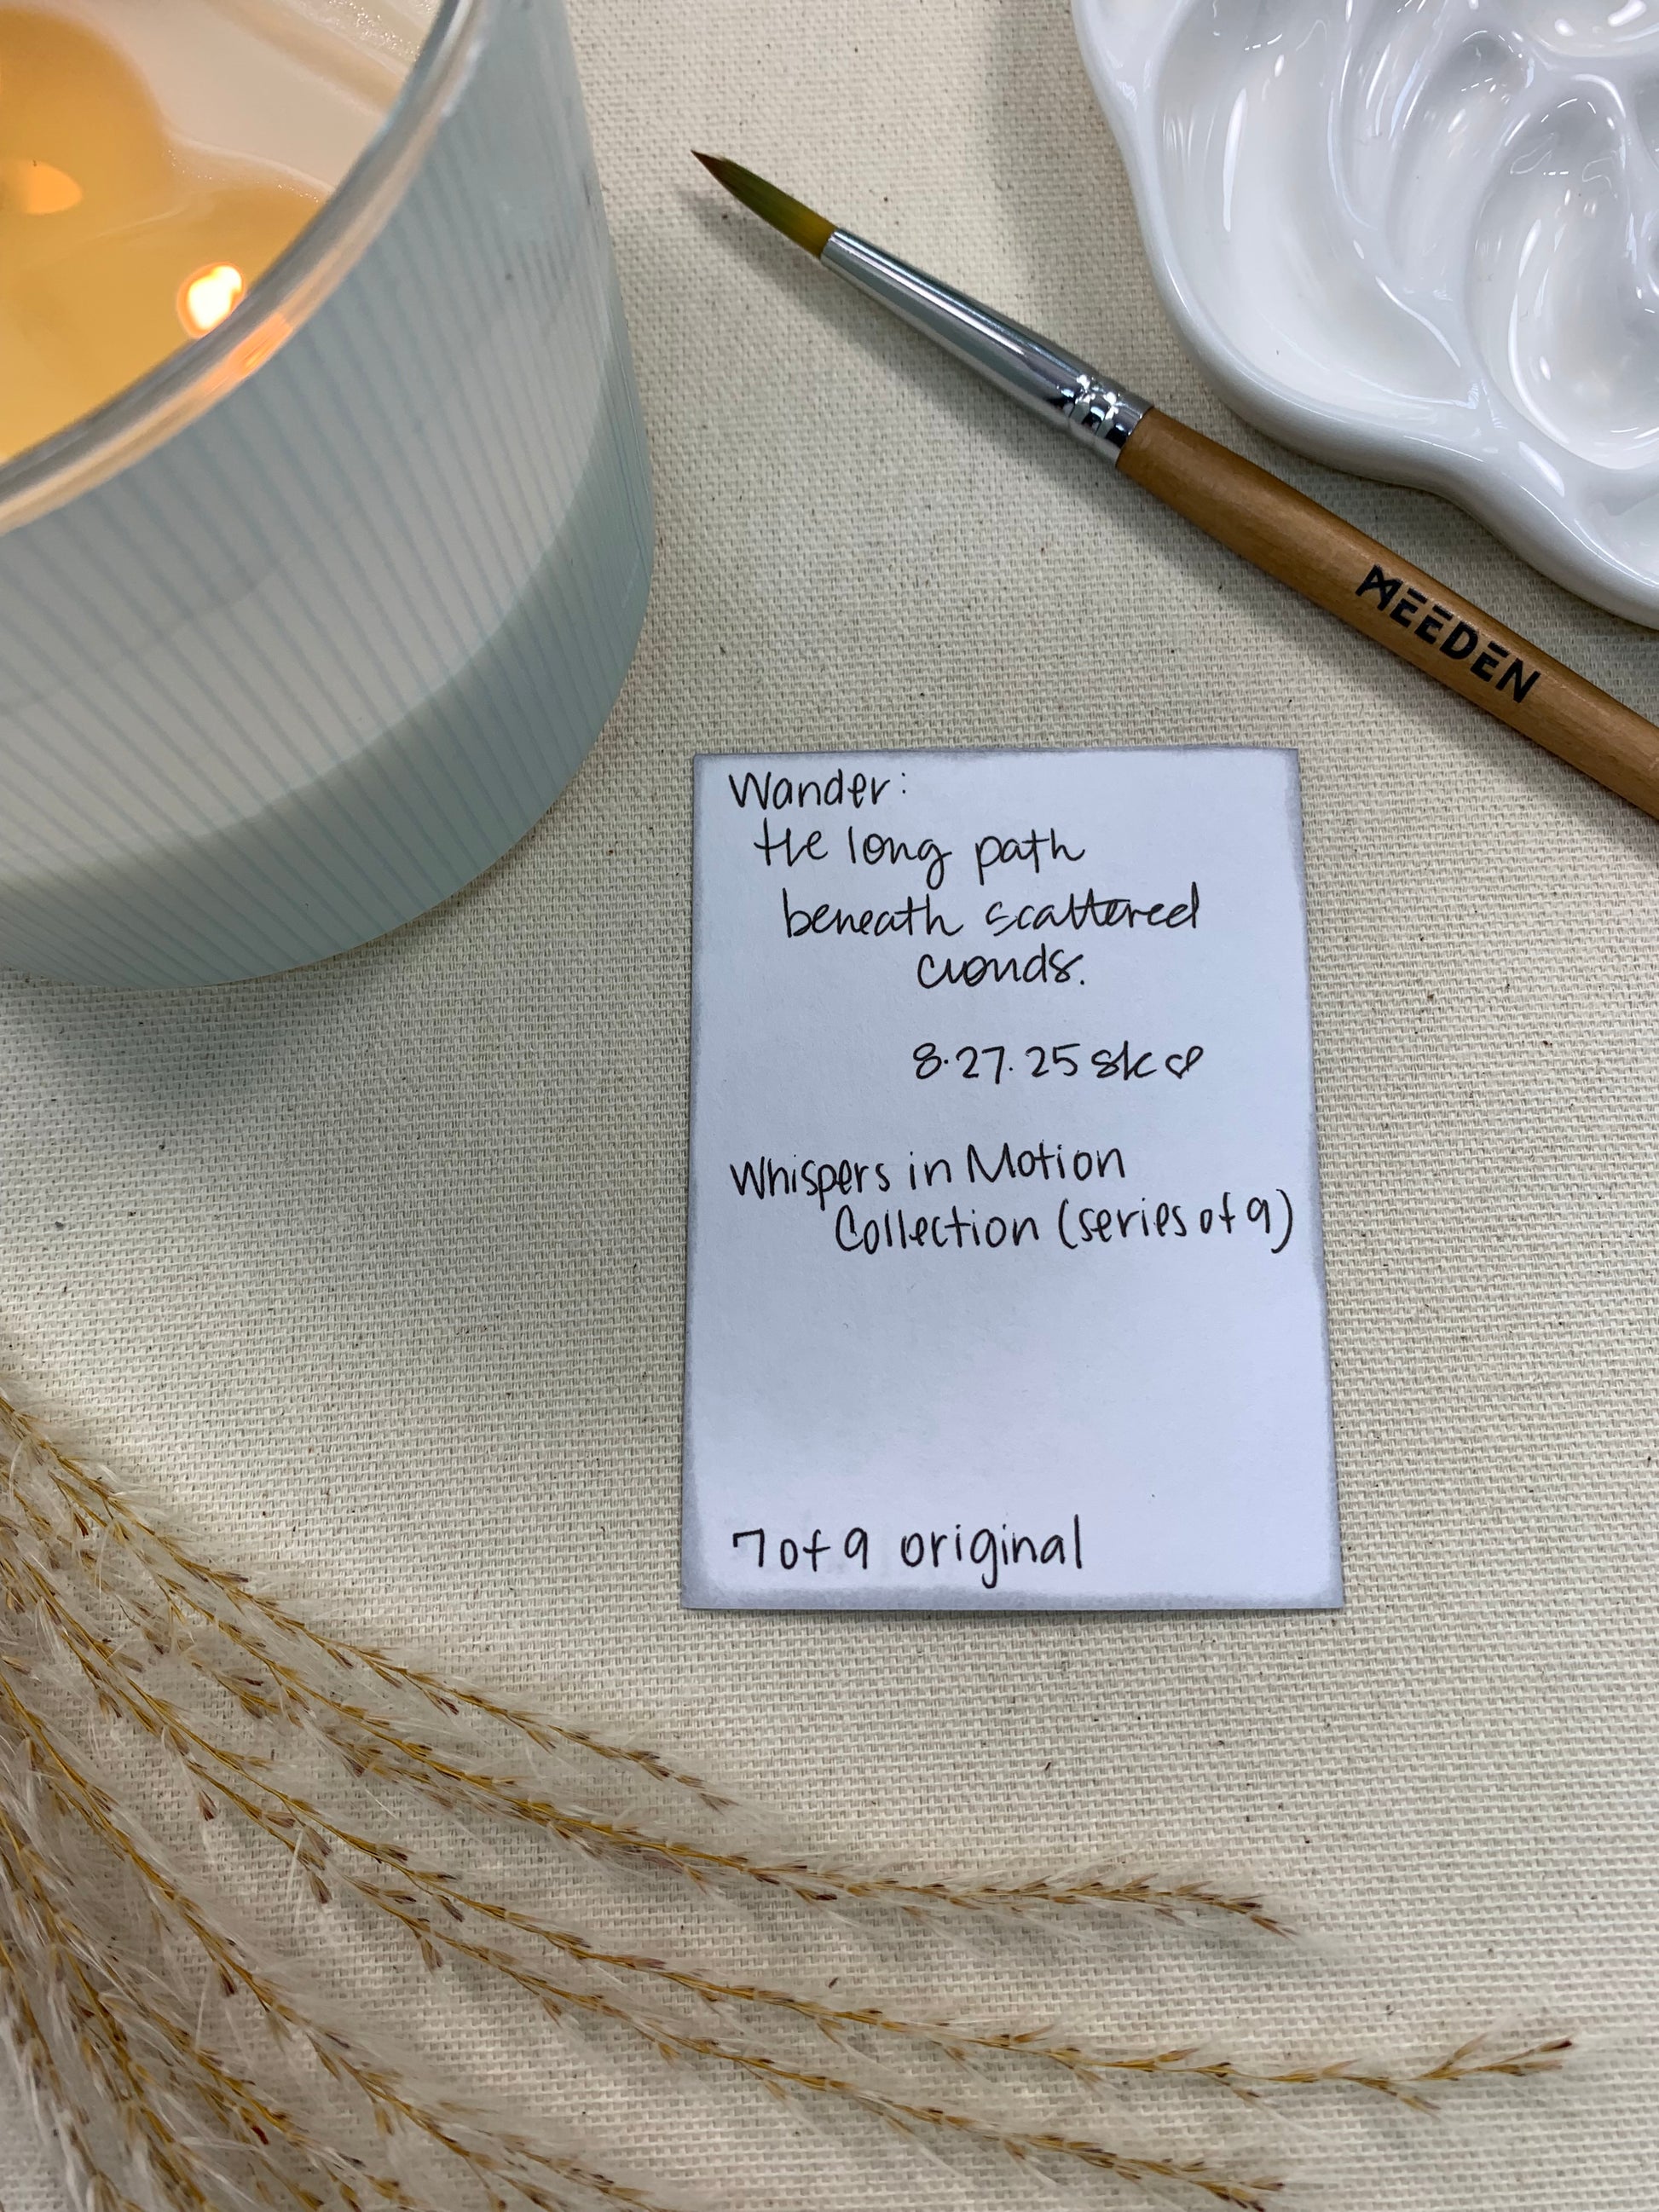 MEEDEN
Wander:
the long path
beneath scattered
clouds.
8.27.25 sk♡
Whispers in Motion
Collection (series of 9)
7 of 9 original